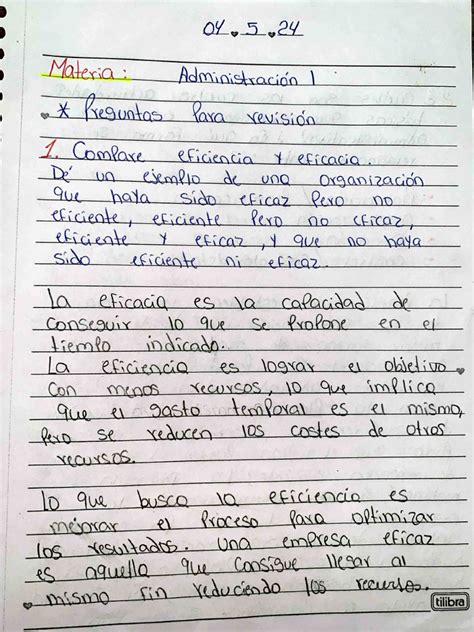 04 . 5 . 24
Materia: Administración 1
* Preguntas Para revisión
1. Compare eficiencia y eficacia
De' un ejemplo de una organización
que haya sido eficaz Pero no
eficiente, eficiente Pero no eficaz,
eficiente y eficaz, y que no haya
sido eficiente ni eficaz.
la eficacia es la capacidad de
conseguir lo que se Propone en el
tiempo indicado.
La eficiencia es lograr el objetivo
con menos recursos, lo que implica
que el gasto temporal es el mismo,
Pero se reducen los costes de otros
recursos.
lo que busca la eficiencia es
mejorar el Proceso Para optimizar
los resultados. una empresa eficaz
es aquella que consigue llegar al
mismo fin reduciendo los recursos.
tilibra